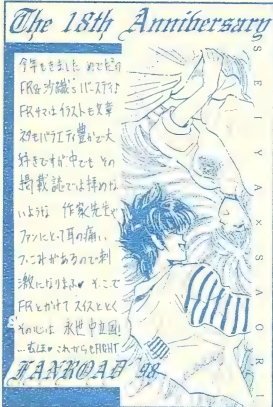 The 18th Anniversary
今年もきました めでたき
FR&沙織's バースディ♪
FRサマはイラストも文章
ネタもバラエティ豊かで大
好きですが中でも その
掲載誌では拝めな
いような 作家先生や
ファンにとって耳の痛い
コーナーがあるので刺
激になりまふ♥ そこで
FRとかけて スイスととく
その心は 永世中立国!
…直球♥ これからもFIGHT
FANROAD 98
SEIYA×SAORI